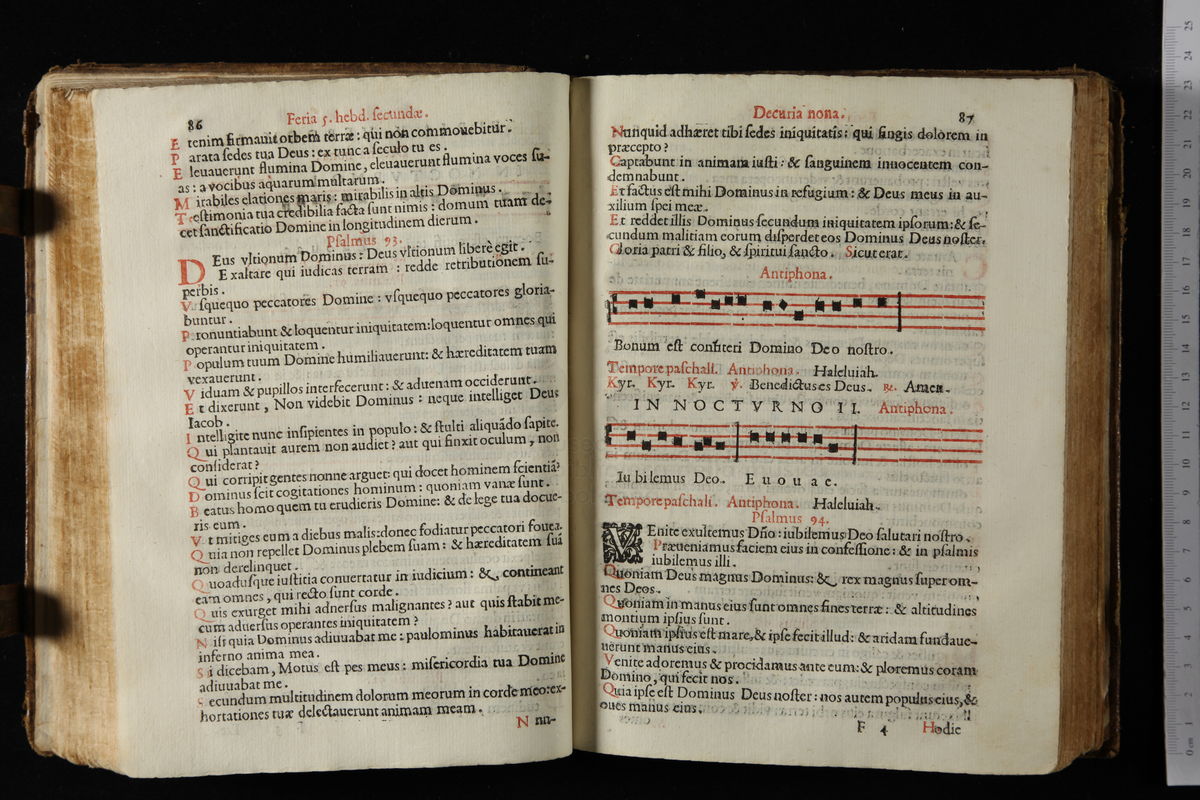 86
Feria 5. hebd. secundæ.
Etenim firmauit orbem terræ : qui non commouebitur.
Parata sedes tua Deus : ex tunc a seculo tu es.
Eleuauerunt flumina Domine, eleuauerunt flumina voces su-
as : a vocibus aquarum multarum.
Mirabiles elationes maris : mirabilis in altis Dominus.
Testimonia tua credibilia facta sunt nimis : domum tuam de-
cet sanctificatio Domine in longitudinem dierum.
Psalmus 93.
DEus vltionum Dominus : Deus vltionum liberè egit.
Exaltare qui iudicas terram : redde retributionem su-
perbis.
Vsquequo peccatores Domine : vsquequo peccatores gloria-
buntur.
Pronuntiabunt & loquentur iniquitatem: loquentur omnes qui
operantur iniquitatem.
Populum tuum Domine humiliauerunt: & hæreditatem tuam
vexauerunt.
Viduam & pupillos interfecerunt : & aduenam occiderunt.
Et dixerunt, Non videbit Dominus : neque intelliget Deus
Iacob.
Intelligite nunc insipientes in populo : & stulti aliquãdo sapite.
Qui plantauit aurem non audiet? aut qui finxit oculum, non
considerat?
Qui corripit gentes non ne arguet: qui docet hominem scientiã?
Dominus scit cogitationes hominum : quoniam vanæ sunt.
Beatus homo quem tu erudieris Domine: & de lege tua docue-
ris eum.
Vt mitiges eum a diebus malis: donec fodiatur peccatori fouea.
Quia non repellet Dominus plebem suam : & hæreditatem suã
non derelinquet.
Quoadusque iustitia conuertatur in iudicium : &, contineant
eam omnes, qui recto sunt corde.
Quis exurget mihi aduersus malignantes? aut quis stabit me-
cum aduersus operantes iniquitatem?
Nisi quia Dominus adiuuabat me : paulominus habitauerat in
inferno anima mea.
Si dicebam, Motus est pes meus : misericordia tua Domine
adiuuabat me.
Secundum multitudinem dolorum meorum in corde meo: ex-
hortationes tuæ delectauerunt animam meam.
Nun-
Decuria nona.
87
Nunquid adhæret tibi sedes iniquitatis : qui fingis dolorem in
præcepto?
Captabunt in animam iusti : & sanguinem innocentem con-
demnabunt.
Et factus est mihi Dominus in refugium : & Deus meus in au-
xilium spei meæ.
Et reddet illis Dominus secundum iniquitatem ipsorum: & se-
cundum malitiam eorum disperdet eos Dominus Deus noster.
Gloria patri & filio, & spiritui sancto. Sicut erat.
Antiphona.
Bonum est confiteri Domino Deo nostro.
Tempore paschali. Antiphona. Haleluiah.
Kyr. Kyr. Kyr. ℣. Benedictus es Deus. ℟. Amen.
IN NOCTVRNO II. Antiphona.
Iu bi lemus Deo. E u o u a e.
Tempore paschali. Antiphona. Haleluiah.
Psalmus 94.
VEnite exultemus Dño : iubilemus Deo salutari nostro.
Præueniamus faciem eius in confessione : & in psalmis
iubilemus illi.
Quoniam Deus magnus Dominus: & rex magnus super om-
nes Deos.
Quoniam in manu eius sunt omnes fines terræ : & altitudines
montium ipsius sunt.
Quoniam ipsius est mare, & ipse fecit illud: & aridam fundaue-
uerunt manus eius.
Venite adoremus & procidamus ante eum: & ploremus coram
Domino, qui fecit nos.
Quia ipse est Dominus Deus noster : nos autem populus eius, &
oues manus eius.
F 4
Hodie